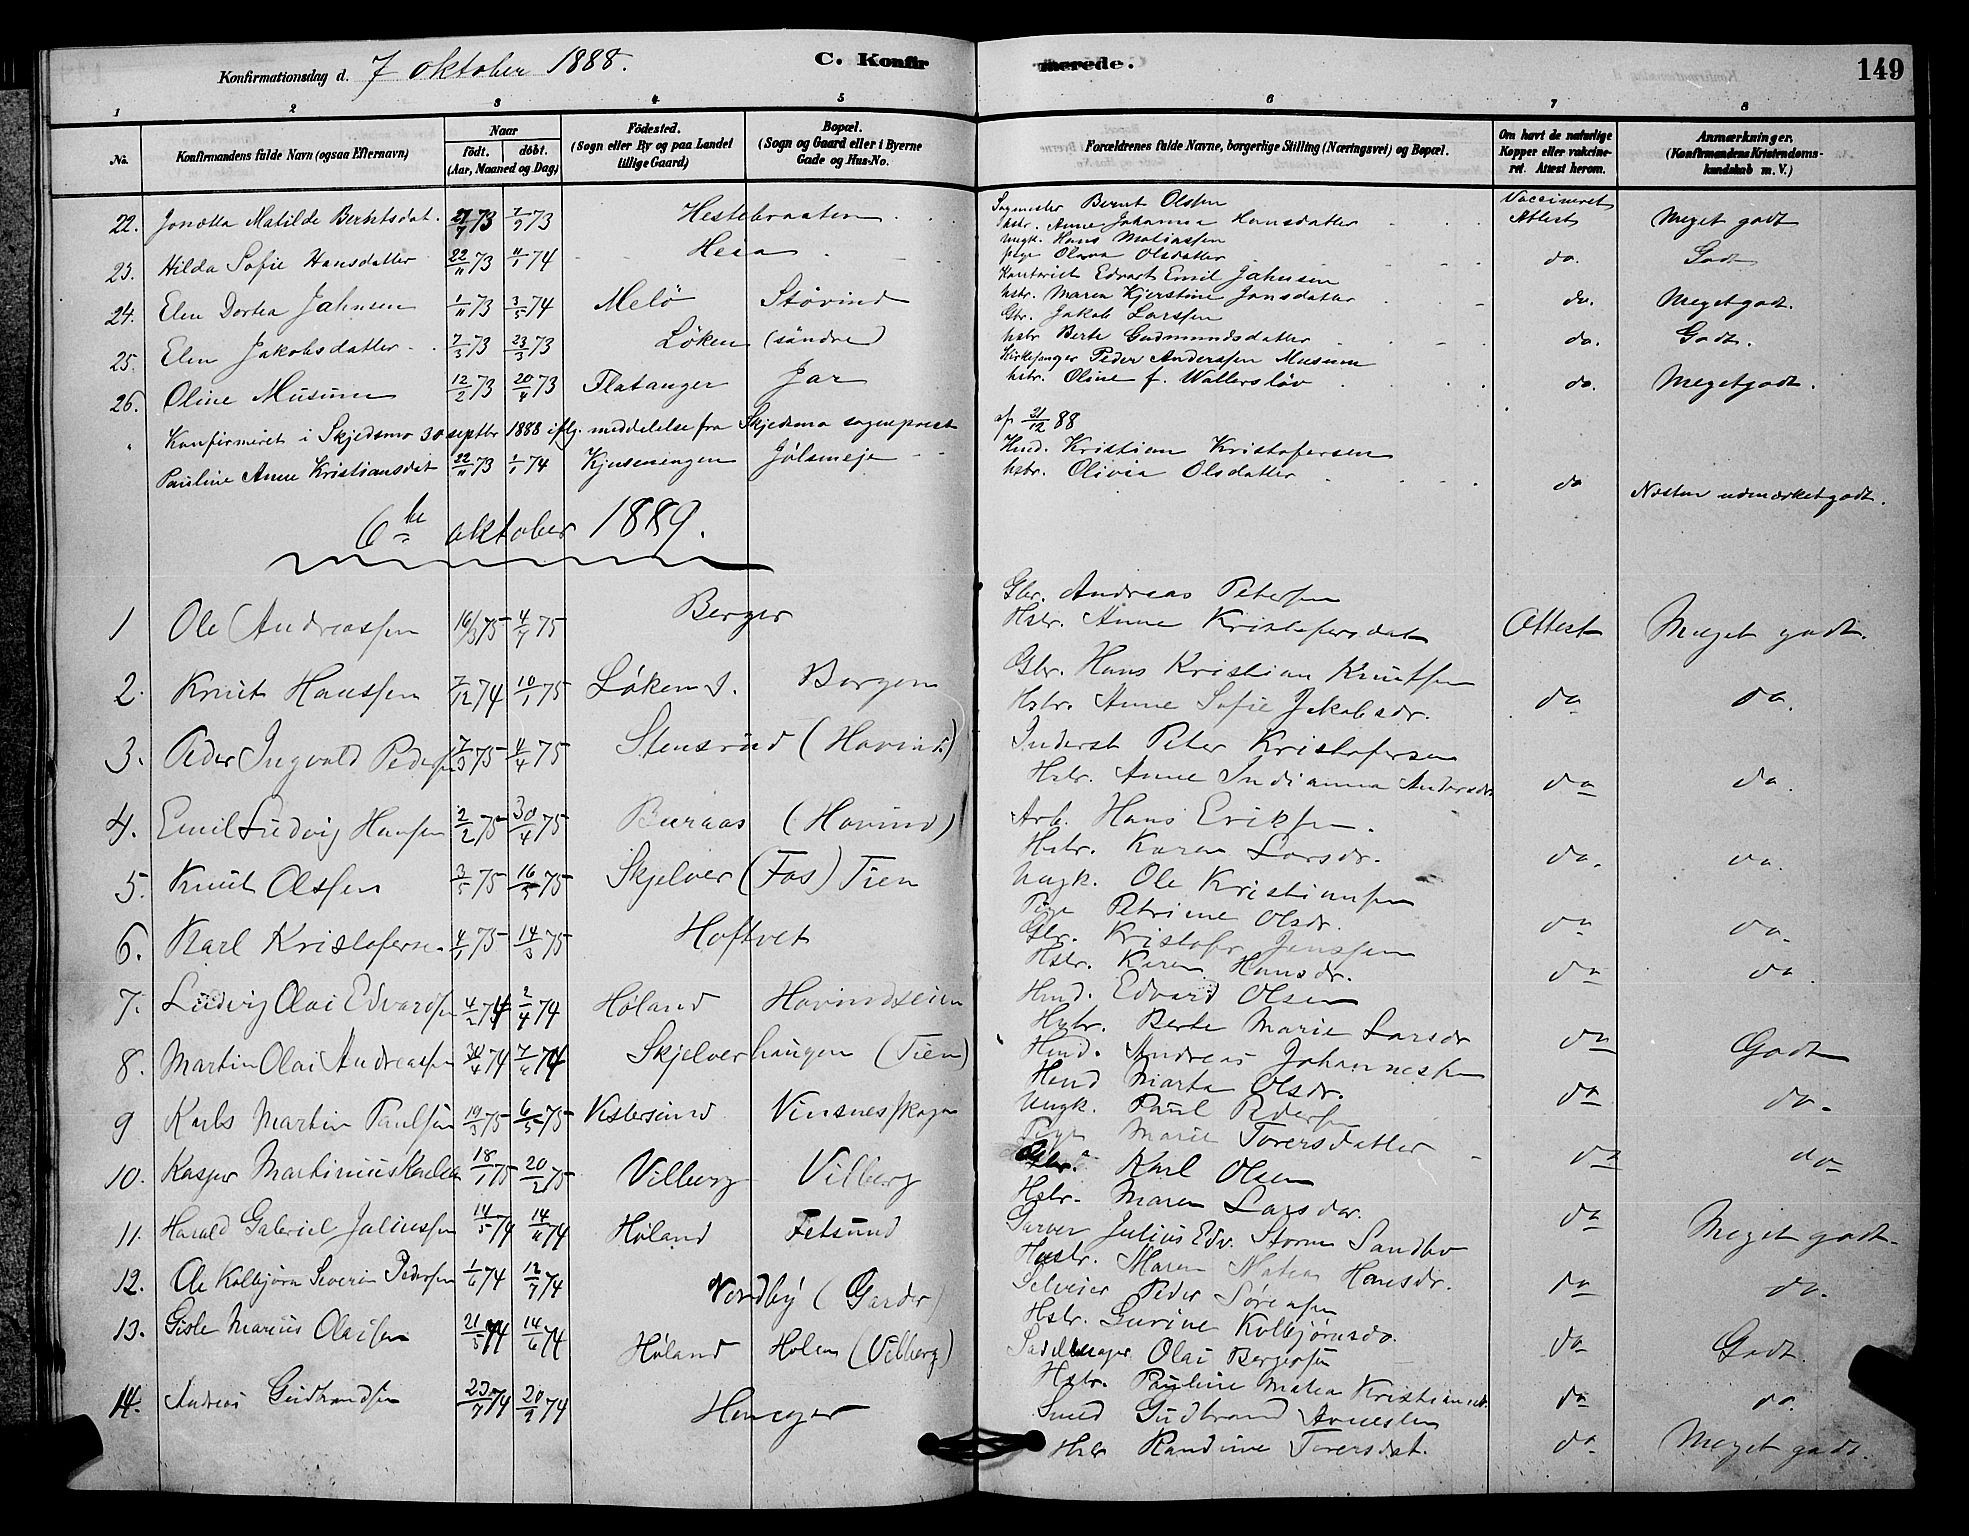 Konfirmationsdag d. 7 oktober 1888.
C. Konfirmerede.
149
1 2 3 4 5 6 7 8
No. Konfirmandens fulde Navn (ogsaa Efternavn) Naar født. døbt. (Aar, Maaned og Dag) Fødested. (Sogn eller By og paa Landet tillige Gaard) Bopæl. (Sogn og Gaard eller i Byerne Gade og Hus-No. Forældrenes fulde Navne, borgerlige Stilling (Næringsvei) og Bopæl. Om havt de naturlige Kopper eller vakcineret. Attest herom. Anmærkninger. (Konfirmandens Kristendomskundskab m. V.)
22. Jonetta Matilde Berntsdat. 27/7 73 7/9 73 Hestebraaten Sagmester Bernt Olssen Vaccineret
hstr. Anne Johanna Hansdatter Attest Meget godt
23. Hilda Sofie Hansdatter 22/11 73 4/1 74 Heia Ungk. Hans Matiassen
pige Olava Olsdatter do. Godt
24. Elen Dortea Jahnsen 1/11 73 3/5 74 Melö Støvind Edvart Emil Jahnsen
hstr. Maren Kjerstine Jansdatter do. Meget godt.
25. Elen Jakobsdatter 7/3 73 23/3 73 Løken (søndre) Gbr. Jakob Larssen
hstr Berte Gudmundsdatter do. Godt.
26. Oline Musum 12/2 73 20/4 73 Flatanger Jar Kirkesanger Peder Anderssen Musum
hstr. Oline f. Wallersløv do. Meget godt.
" Konfirmeret i Skjedsmo 30 septbr 1888 iflg. meddelelse fra Skjedsmo sogneprest af 31/12 88
Pauline Anne Kristiansdat 22/11 73 1/1 74 Jølsmeje Hmd. Kristian Kristofersen
hstr. Olivia Olsdatter do Næsten udmærketgodt.
6te oktober 1889.
1 Ole Andreassen 16/3 75 4/7 75 Berger Gbr. Andreas Petersen
Hstr. Anne Kristofersdat Attest Meget godt.
2. Knut Hanssen 7/12 74 10/1 75 Løken s. Borgen Gbr. Hans Kristian Knutsen
Hstr. Anne Sofie Jakobsdr. do do.
3. Peder Ingvald Peders 7/3 75 4/4 75 Stensrud (Hovind) Inderst Peter Kristofersen
Hstr. Anne Indianna Andersdr do do.
4. Emil Ludvig Hansen 2/2 75 30/4 75 Buraas (Hovind) Arb. Hans Eriksen.
Hstr. Karen Larsdr. do. do.
5. Knut Olssen 3/5 75 16/5 75 Skjelver (Fos) Tien Ungk. Ole Kristiansen
Pige Petrine Olsdr. do do.
6. Karl Kristofersen 4/1 75 14/3 75 Hoftvet Gbr. Kristofer Jenssen
Hstr. Karen Hansdr. do do.
7. Ludvig Olai Edvardsen 4/2 74 2/4 74 Høland Hovindseien Hmd. Edvard Olsen
Hstr. Berte Marie Larsdr do Godt
8. Martin Olai Andreassen 30/4 74 7/6 74 Skjelverhaugen (Tien) Hmd. Andreas Johannessen
Hmd Marta Olsdr. do do.
9 Karls Martin Paulsen 19/3 75 6/5 75 Vestersund Vinsnesskogen Ungk. Paul Pedersen
Pige Marie Toversdatter do do
10. Kasper Martinius Karlsen 18/1 75 20/2 75 Vilberg Vilberg Gbr. Karl Olsen
Hstr. Maren Larsdar. do Meget godt.
11. Harald Gabriel Juliussen 14/5 74 14/11 74 Høland Fetsund Garver Julius Edv. Storm Sandbo
Hustr. Maren Matea Hansdr. do do.
12. Ole Kolbjørn Severin Pedersen 1/6 74 12/7 74 Nordby (Garder) Selveier Peder Sørensen
Hstr. Gurine Kolbjørnsdr. do Godt.
13. Gisle Marius Olaisen 21/5 74 14/6 74 Høland Holen (Vilberg) Sadelmager Olai Bergersen
Hstr. Pauline Matea Kristiansdr do do.
14. Andreas Gudbrandsen 23/7 74 20/9 74 Heneger Smed Gudbrand Arnesen
Hstr Randine Toversdat. do Meget godt.